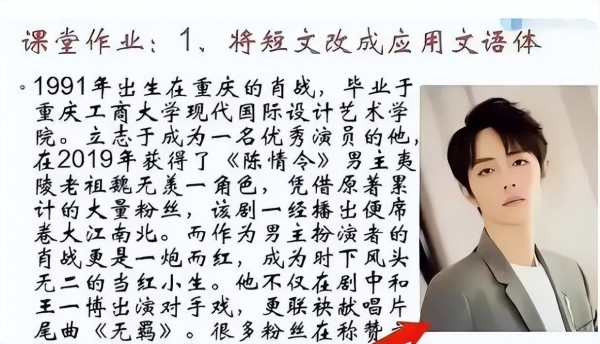 课堂作业：1、将短文改成应用文语体
1991年出生在重庆的肖战，毕业于
重庆工商大学现代国际设计艺术学
院。立志于成为一名优秀演员的他，
在2019年获得了《陈情令》男主夷
陵老祖魏无羡一角色，凭借原著累
计的大量粉丝，该剧一经播出便席
卷大江南北。而作为男主扮演者的
肖战更是一炮而红，成为时下风头
无二的当红小生。他不仅在剧中和
王一博出演对手戏，更联袂献唱片
尾曲《无羁》。很多粉丝在称赞